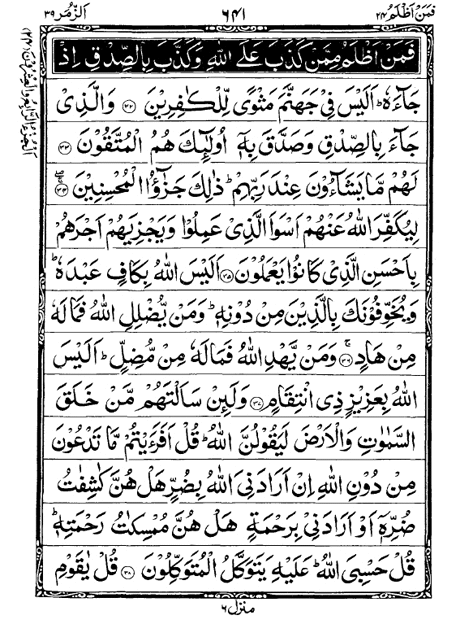 فَمَنْ اَظْلَمُ ۲۴
۶۴۱
اَلزُّمَر ۳۹
اَلْجُزْءُ الرَّابِعُ وَالْعِشْرُوْنَ (۲۴)
فَمَنْ اَظْلَمُ مِمَّنْ كَذَبَ عَلَى اللّٰهِ وَكَذَّبَ بِالصِّدْقِ اِذْ
جَآءَهٗ ؕ اَلَيْسَ فِيْ جَهَنَّمَ مَثْوًى لِّلْكٰفِرِيْنَ ۝۳۲ وَالَّذِيْ
جَآءَ بِالصِّدْقِ وَصَدَّقَ بِهٖۤ اُولٰٓئِكَ هُمُ الْمُتَّقُوْنَ ۝۳۳
لَهُمْ مَّا يَشَآءُوْنَ عِنْدَ رَبِّهِمْ ؕ ذٰلِكَ جَزٰٓؤُا الْمُحْسِنِيْنَ ۝۳۴
لِيُكَفِّرَ اللّٰهُ عَنْهُمْ اَسْوَاَ الَّذِيْ عَمِلُوْا وَيَجْزِيَهُمْ اَجْرَهُمْ
بِاَحْسَنِ الَّذِيْ كَانُوْا يَعْمَلُوْنَ ۝۳۵ اَلَيْسَ اللّٰهُ بِكَافٍ عَبْدَهٗ ؕ
وَيُخَوِّفُوْنَكَ بِالَّذِيْنَ مِنْ دُوْنِهٖ ؕ وَمَنْ يُّضْلِلِ اللّٰهُ فَمَا لَهٗ
مِنْ هَادٍ ۝۳۶ وَمَنْ يَّهْدِ اللّٰهُ فَمَا لَهٗ مِنْ مُّضِلٍّ ؕ اَلَيْسَ
اللّٰهُ بِعَزِيْزٍ ذِي انْتِقَامٍ ۝۳۷ وَلَئِنْ سَاَلْتَهُمْ مَّنْ خَلَقَ
السَّمٰوٰتِ وَالْاَرْضَ لَيَقُوْلُنَّ اللّٰهُ ؕ قُلْ اَفَرَءَيْتُمْ مَّا تَدْعُوْنَ
مِنْ دُوْنِ اللّٰهِ اِنْ اَرَادَنِيَ اللّٰهُ بِضُرٍّ هَلْ هُنَّ كٰشِفٰتُ
ضُرِّهٖۤ اَوْ اَرَادَنِيْ بِرَحْمَةٍ هَلْ هُنَّ مُمْسِكٰتُ رَحْمَتِهٖ ؕ
قُلْ حَسْبِيَ اللّٰهُ ؕ عَلَيْهِ يَتَوَكَّلُ الْمُتَوَكِّلُوْنَ ۝۳۸ قُلْ يٰقَوْمِ
منزل ۶